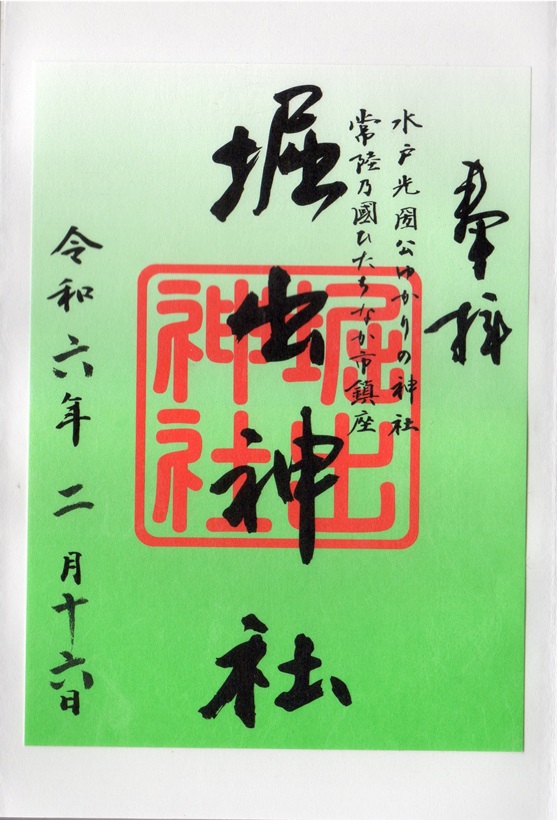 奉拝
水戸光圀公ゆかりの神社
常陸乃國ひたちなか市鎮座
堀出神社
堀出神社
令和六年 二月十六日